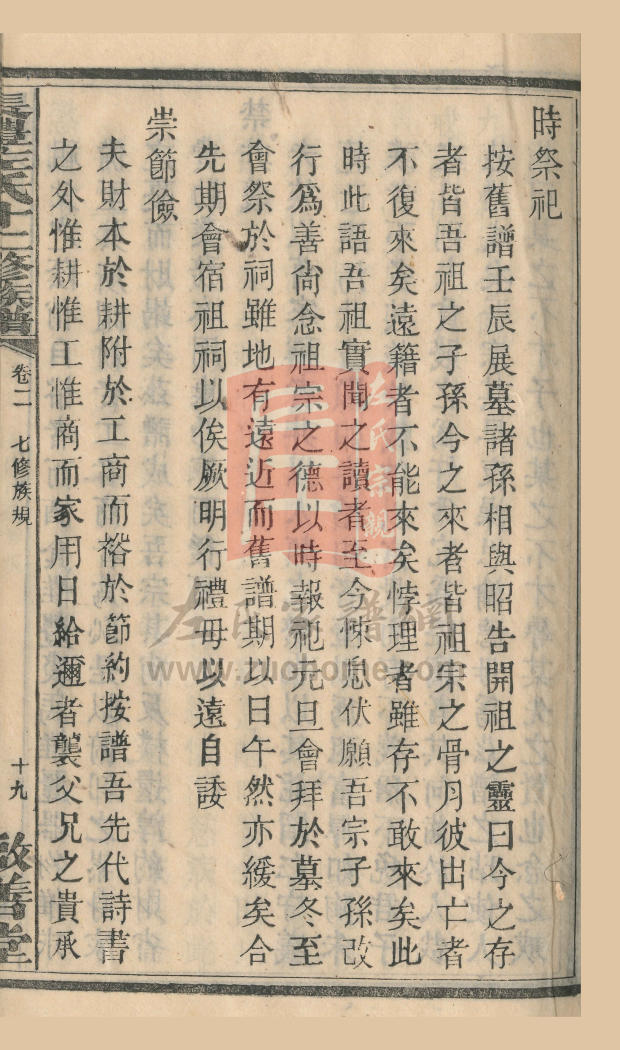 時祭祀
按舊譜壬辰展墓諸孫相與昭告開祖之靈曰今之存
者皆吾祖之子孫今之來者皆祖宗之骨月彼出亡者
不復來矣遠籍者不能來矣悖理者雖存不敢來矣此
時此語吾祖實聞之讀者至今悚息伏願吾宗子孫改
行爲善尙念祖宗之德以時報祀元旦會拜於墓冬至
會祭於祠雖地有遠近而舊譜期以日午然亦緩矣合
先期會宿祖祠以俟厥明行禮毋以遠自諉
崇節儉
夫財本於耕附於工商而裕於節約按譜吾先代詩書
之外惟耕惟工惟商而家用日給邇者襲父兄之貴承
長豐左氏十二修族譜
卷二
七修族規
十九
啟善堂
左氏宗親
左氏宗譜網
www.zuohome.com